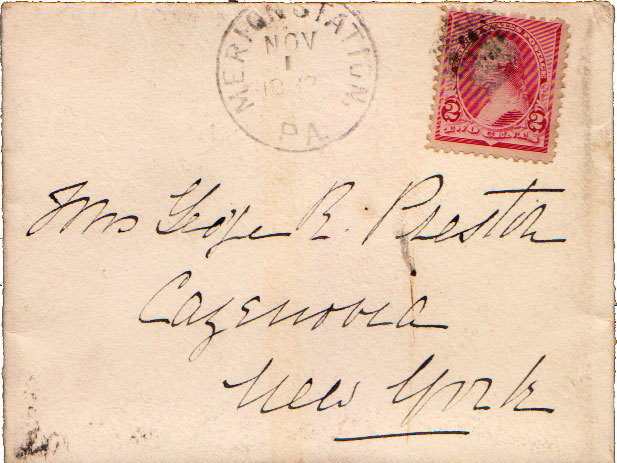 MERION STATION
NOV
1
PA.
2 TWO CENTS 2
Mrs Geo. R. Preston
Cazenovia
New York